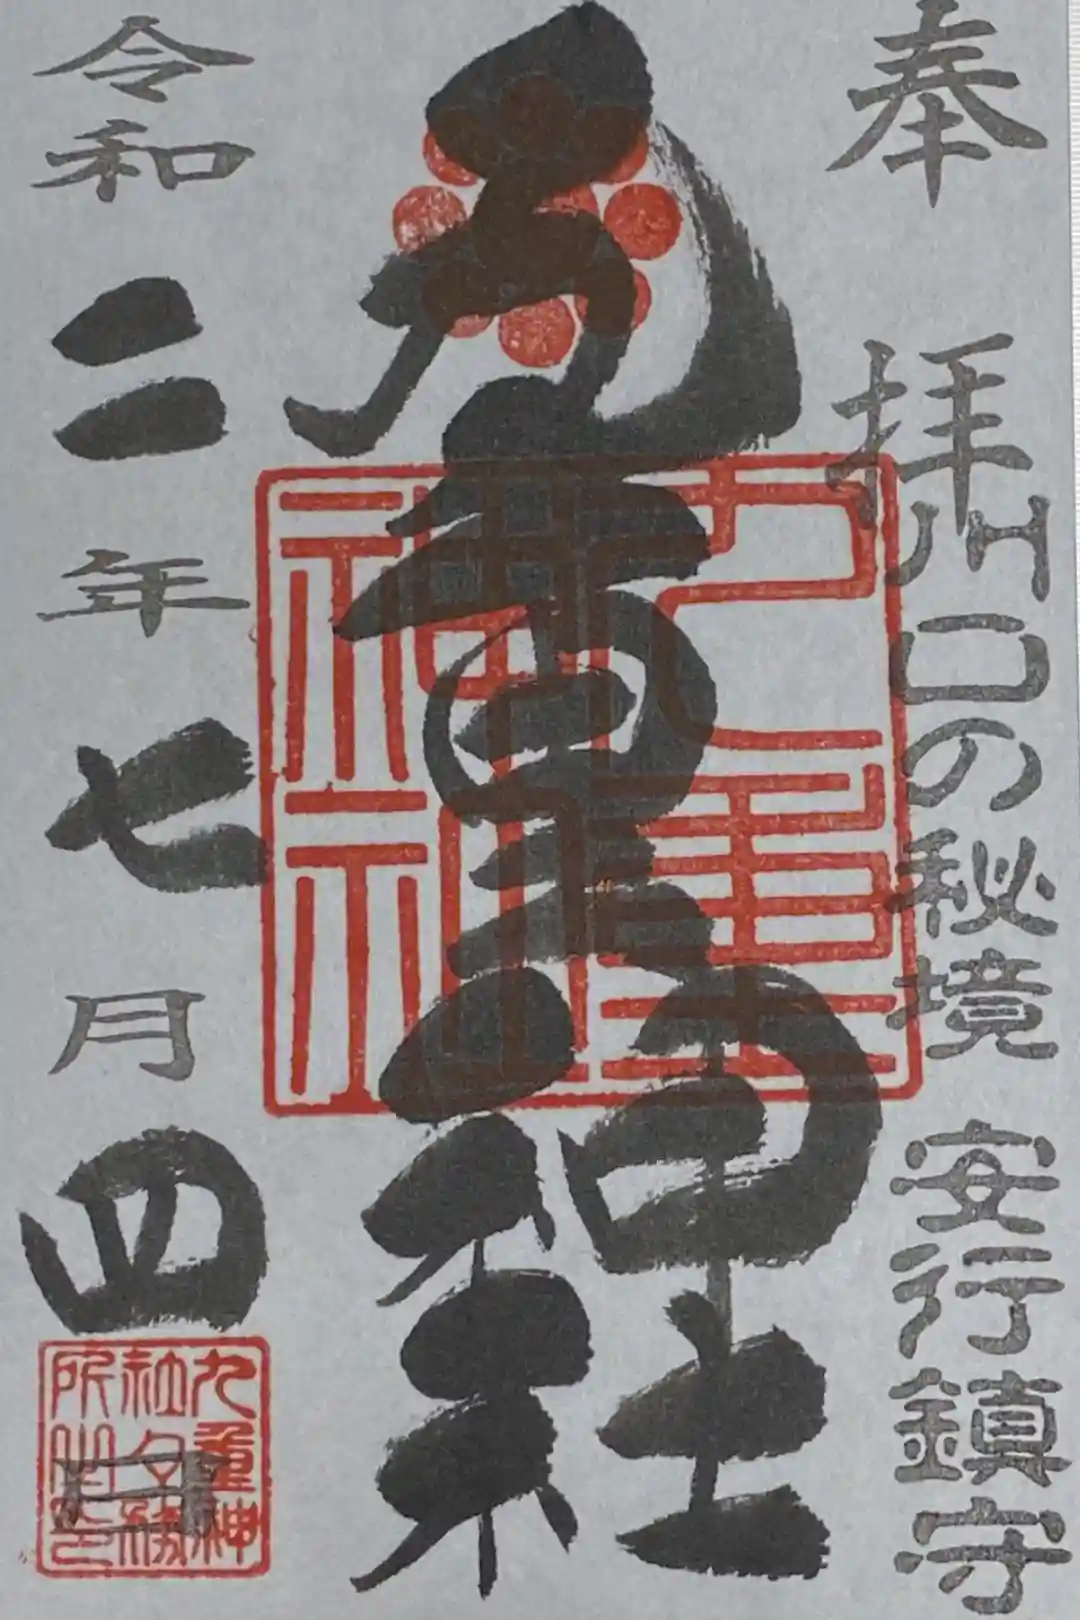 奉拝
川口の秘境 安行鎮守
九重神社
九重神社
令和二年七月四日
九重神
社夕務
所之印